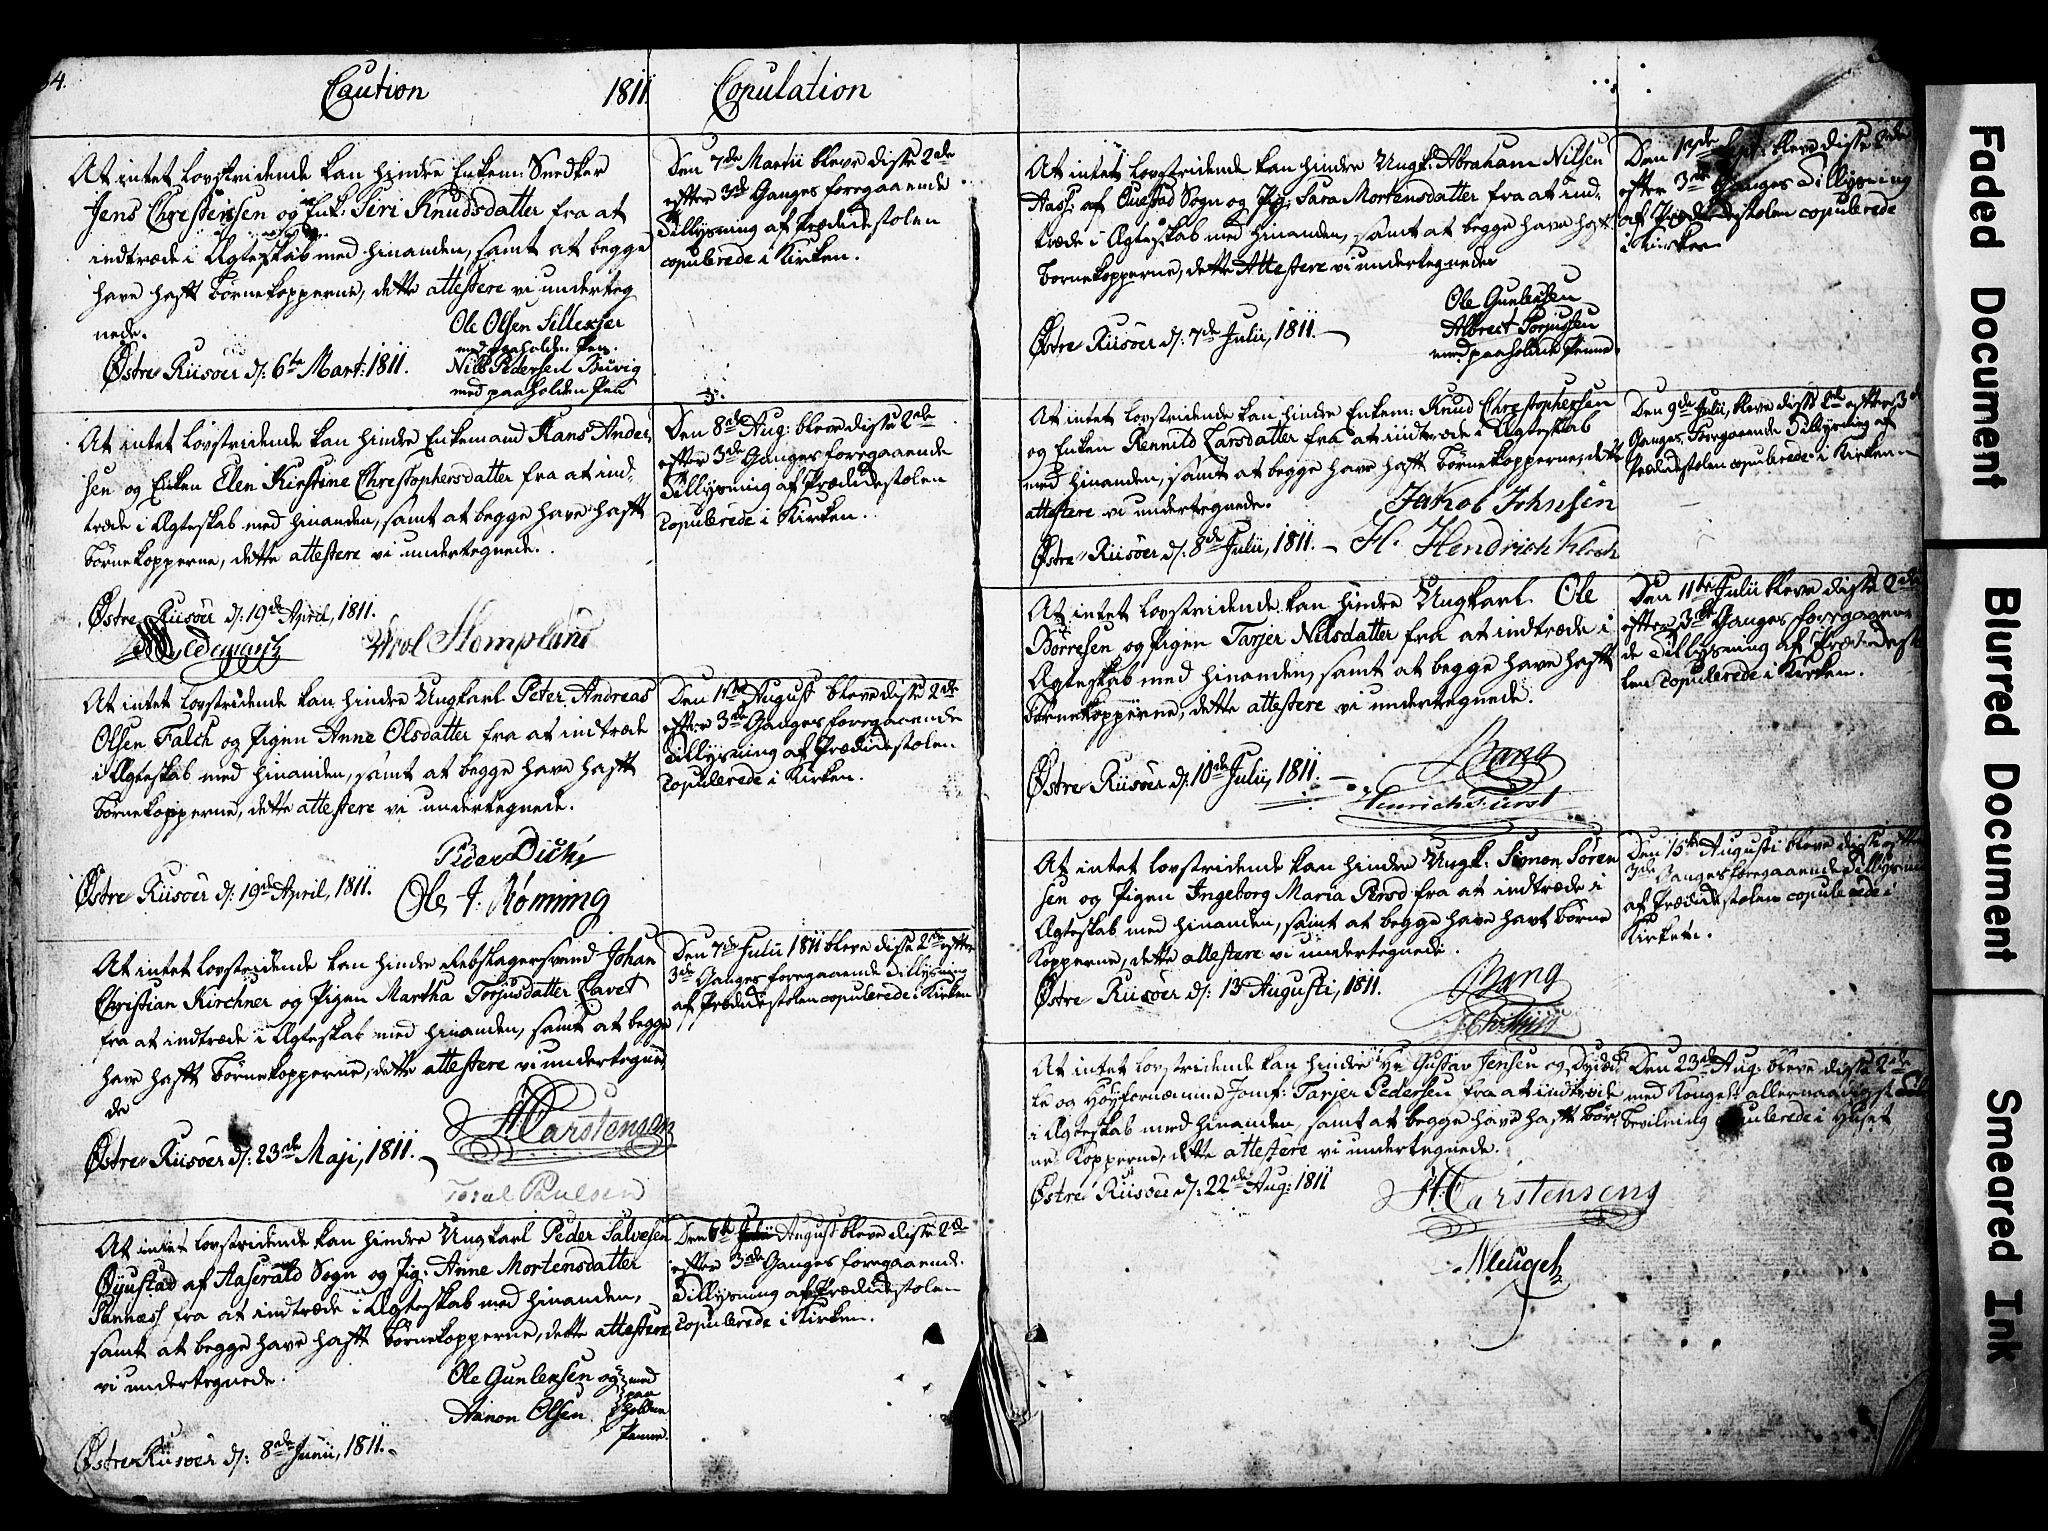 54.
Caution 1811. Copulation
At intet lovstridende kan hindre Enkem: Snedker
Jens Christensen og Enk: Siri Knudsdatter fra at
indtræde i Ægteskab med hinanden, samt at begge
have hafft Børnekopperne, dette attestere vi underteg
nede.
Ole Olsen Sillexjer
med paaholden Pen.
Østre Riisøer d: 6te Mart: 1811.
Niels Pedersen Buvig
med paaholden Pen
Den 7de Martii bleve disse 2de
efter 3de Ganges foregaaende
Tillysning af Prædidestolen
copulerede i Kirken.
At intet lovstridende kan hindre Enkemand Hans Ander
sen og Enken Elen Kirstine Christophersdatter fra at ind-
træde i Ægteskab med hinanden, samt at begge have hafft
Børnekopperne, dette attestere vi undertegnede.
Østre Riisøer d: 19de April, 1811.
Stempland
Den 8de Aug: bleve disse 2de
efter 3de Ganges foregaaende
Tillysning af Prædidestolen
copulerede i Kirken.
At intet lovstridende kan hindre Ungkarl Peter Andreas
Olsen Falch og Pigen Anne Olsdatter fra at indtræde
i Ægteskab med hinanden, samt at begge have hafft
Børnekopperne, dette attestere vi undertegnede.
Peder Dick
Østre Riisøer d: 19de April, 1811.
Ole J. Rømning
Den 1ste August bleve disse 2de
efter 3de Ganges foregaaende
Tillysning af Prædidestolen
copulerede i Kirken.
At intet lovstridende kan hindre Rebslagersvend Johan
Christian Kirchner og Pigen Martha Torjusdatter Lavet
fra at indtræde i Ægteskab med hinanden, samt at begge
have hafft Børnekopperne, dette attestere vi undertegne
de
H Carstensen
Østre Riisøer d: 23de Maji, 1811.
Paulsen
Den 7de Julii 1811 bleve disse 2de efter
3de Ganges foregaaende Tillysning
af Prædidestolen copulerede i Kirken
At intet lovstridende kan hindre Ungkarl Peder Salvesen
Øyustad af Aaserald Sogn og Pig: Anne Mortensdatter
Sannæss fra at indtræde i Ægteskab med hinanden,
samt at begge have hafft Børnekopperne, dette attestere
vi undertegnede.
Ole Gunlensen og med
paa
Aanon Olsen holden
Penne.
Østre Riisøer d: 8de Junii, 1811.
Den 6te Julii August bleve disse 2de
efter 3de Ganges foregaaende
Tillysning af Prædidestolen
copulerede i Kirken.
At intet lovstridende kan hindre Ungk: Abraham Nilsen
Aass: af Sogn og Pig: Sara Mortensdatter fra at ind-
træde i Ægteskab med hinanden, samt at begge have hafft
Børnekopperne, dette Attestere vi undertegnede
Ole Gunlensen
Østre Riisøer d: 7de Julii, 1811.
Albrect Torjussen
med paaholden Penne.
Den 13de Sept: bleve disse 2de
efter 3de Ganges Tillysning
af Prædidestolen copulerede
i Kirken
At intet lovstridende kan hindre Enkem: Knud Christophersen
og Enken Rennild Larsdatter fra at indtræde i Ægteskab
med hinanden, samt at begge have hafft Børnekopperne, dette
attestere vi undertegnede.
Jakob Johnsen
Østre Riisøer d: 8de Julii, 1811.
H. Hendrich
Den 9de Julii, bleve disse 2de efter 3de
Ganges Foregaaende Tillysning af
Prædidestolen copulerede i Kirken
At intet lovstridende kan hindre Ungkarl Ole
Børresen og Pigen Tarjer Nilsdatter fra at indtræde i
Ægteskab med hinanden, samt at begge have hafft
Børnekopperne, dette attestere vi undertegnede.
Bang
Østre Riisøer d: 10de Julii, 1811.
Henrich Fürst
Den 11te Julii bleve disse 2de
efter 3de Ganges foregaaen
de Tillysning af Prædidesto
len copulerede i Kirken.
At intet lovstridende kan hindre Ungk: Simon Søren
sen og Pigen Ingeborg Maria Persd fra at indtræde i
Ægteskab med hinanden, samt at begge have havt Børne
Kopperne, dette attestere vi undertegnede.
Bang
Østre Riisøer d: 13 Augusti, 1811.
Den 15de Augusti bleve disse efter
3de Ganges foregaaende Tillysning
af Prædidestolen copulerede i
Kirken.
At intet lovstridende kan hindre Hr Gustav Jensen og Dyæd
le og Høyfornemme Jomf: Tarjer Pedersen fra at indtræde
i Ægteskab med hinanden, samt at begge have hafft Bør-
ne Kopperne, dette attestere vi undertegnede.
Østre Riisøer d: 22de Aug: 1811
H Carstensen
Den 23de Aug: bleve disse 2de
med Kongens allernaadigst
Bevilning copulerede i Huset
Faded Document
Blurred Document
Smeared Ink